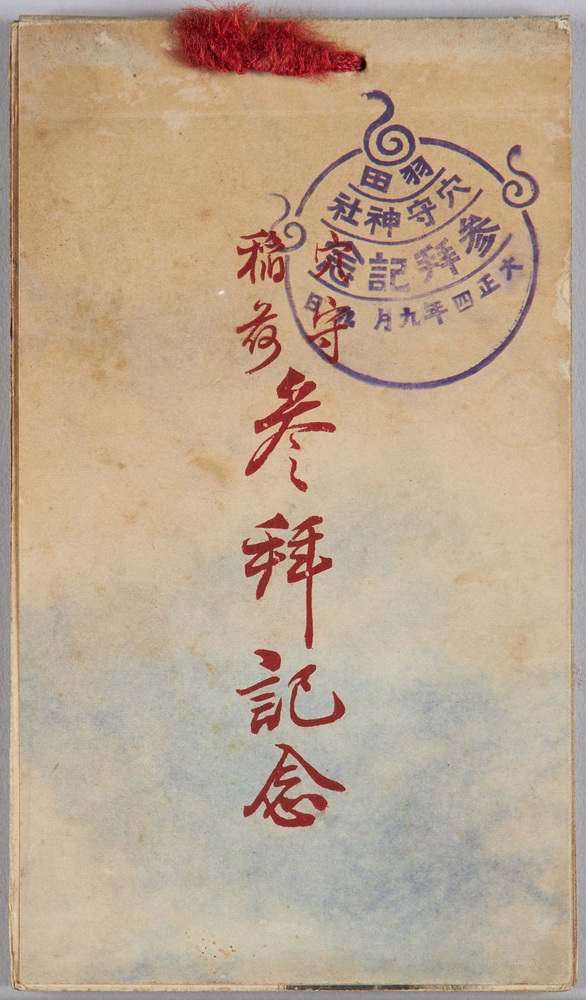 羽田
穴守神社
参拜記念
大正四年九月 日
穴守
稲荷
参拜記念